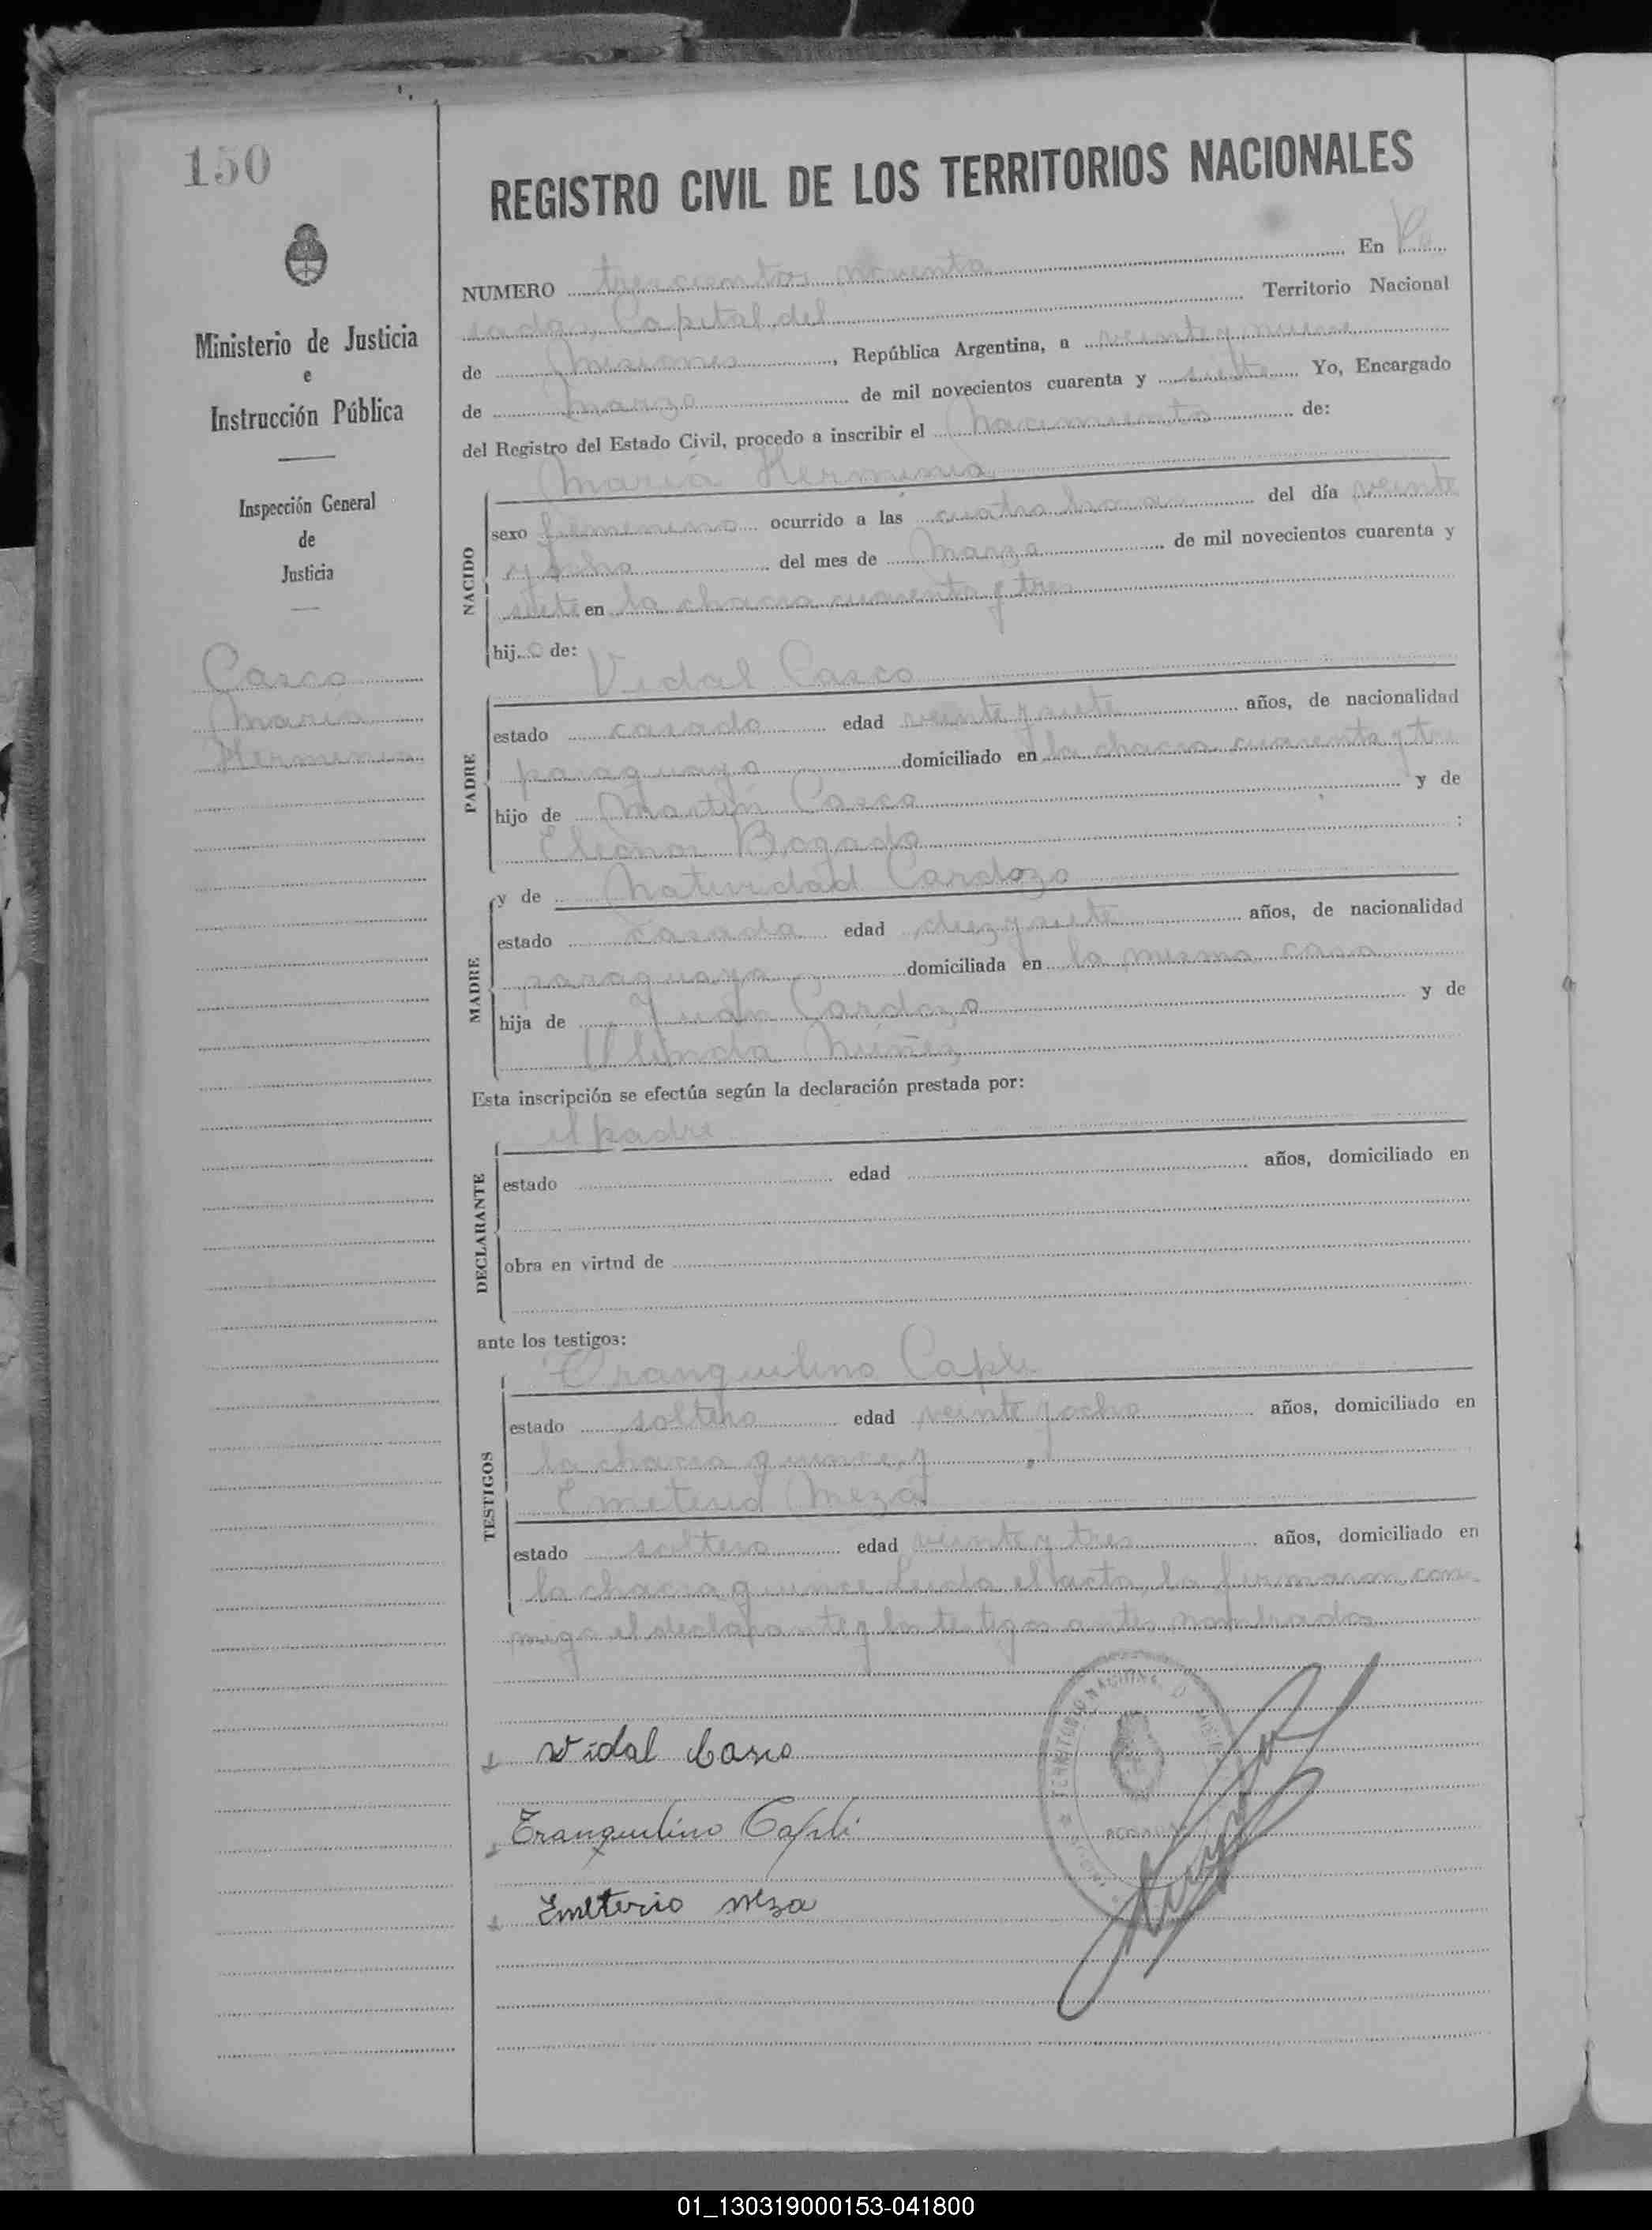 150
Ministerio de Justicia
e
Instrucción Pública
Inspección General
de
Justicia
Casco
María
Herminia
REGISTRO CIVIL DE LOS TERRITORIOS NACIONALES
NUMERO trescientos noventa En Po
sadas, Capital del Territorio Nacional
de Misiones, República Argentina, a veinte y nueve
de marzo de mil novecientos cuarenta y siete Yo, Encargado
del Registro del Estado Civil, procedo a inscribir el nacimiento de:
María Herminia
NACIDO
sexo femenino ocurrido a las cuatro horas del día veinte
y ocho del mes de marzo de mil novecientos cuarenta y
siete en la chacra cuarenta y tres
hija de:
Vidal Casco
PADRE
estado casado edad veinte y siete años, de nacionalidad
paraguaya domiciliado en la chacra cuarenta y tres
hijo de Martín Casco y de
Eleonor Bogado:
y de Natividad Cardozo
MADRE
estado casada edad diez y siete años, de nacionalidad
paraguaya domiciliada en la misma casa
hija de Juan Cardozo y de
Núñez
Esta inscripción se efectúa según la declaración prestada por:
el padre
DECLARANTE
estado edad años, domiciliado en
obra en virtud de
ante los testigos:
Tranquilino Capli
TESTIGOS
estado soltero edad veinte y ocho años, domiciliado en
la chacra quince, y
Emeterio Meza
estado soltero edad veinte y tres años, domiciliado en
la chacra quince. Leida el acta, la firmaron con
migo el declarante y los testigos antes nombrados
Vidal Casco
Tranquilino Capli
Emeterio Meza
TERRITORIO NACIONAL D
01_130319000153-041800